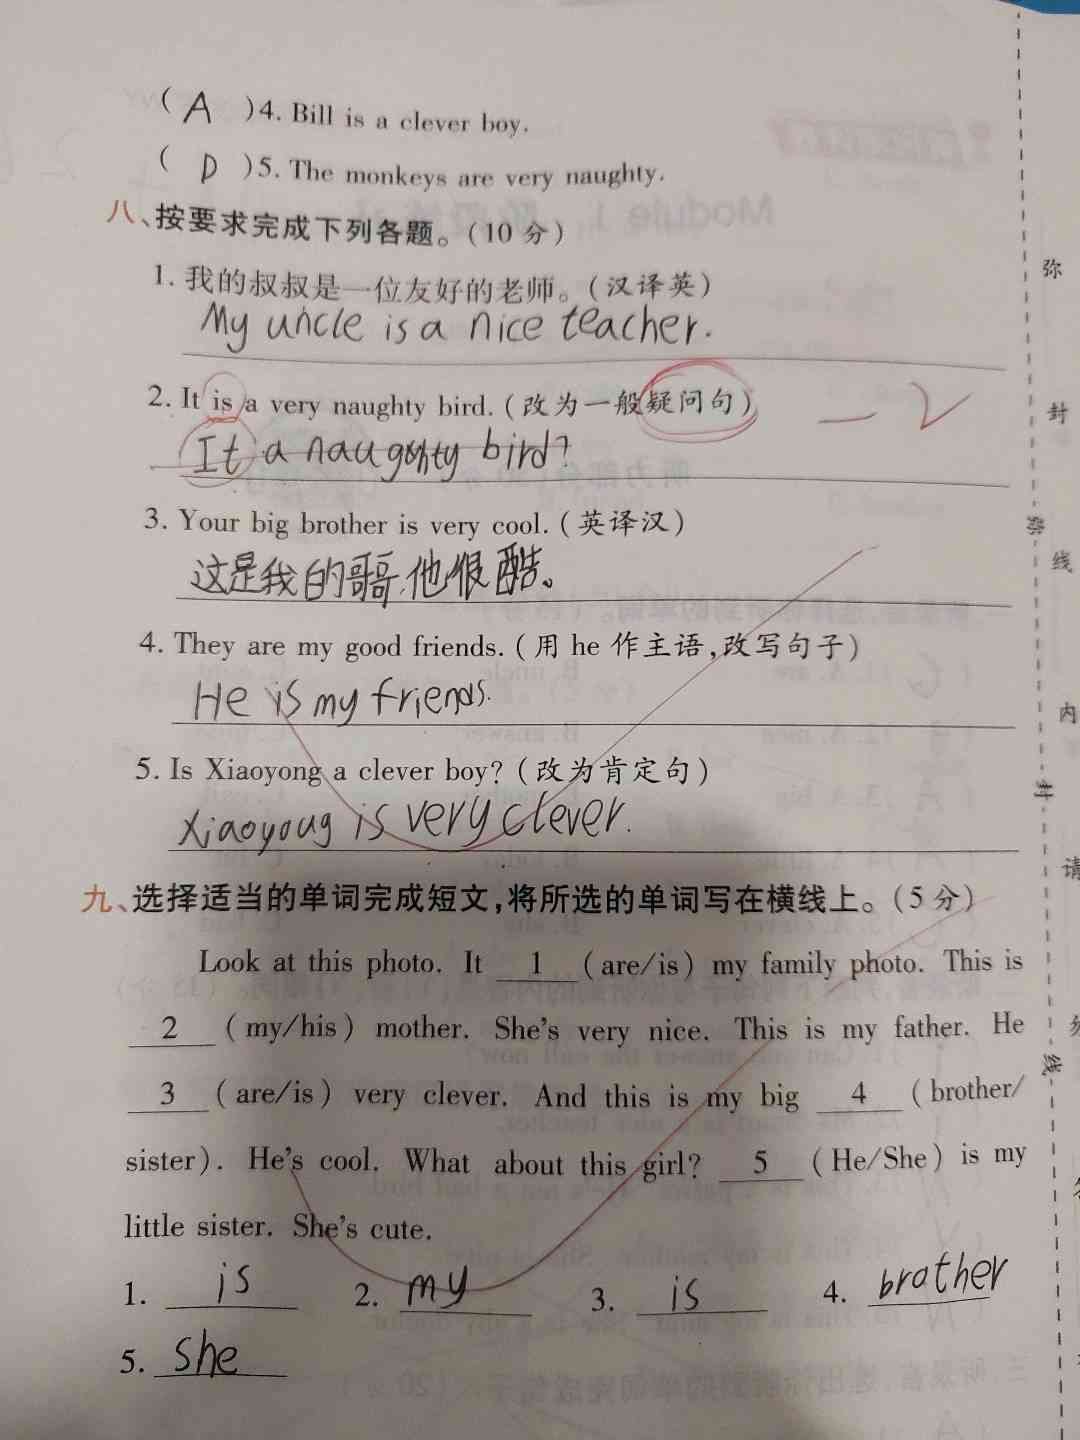 ( A )4. Bill is a clever boy.
( D )5. The monkeys are very naughty.
八、按要求完成下列各题。(10 分)
1. 我的叔叔是一位友好的老师。(汉译英)
My uncle is a nice teacher.
2. It is a very naughty bird. (改为一般疑问句) — 2
It a naughty bird?
3. Your big brother is very cool. (英译汉)
这是我的哥哥,他很酷。
4. They are my good friends. (用 he 作主语,改写句子)
He is my friends.
5. Is Xiaoyong a clever boy? (改为肯定句)
Xiaoyoug is very clever.
九、选择适当的单词完成短文,将所选的单词写在横线上。(5 分)
Look at this photo. It 1 (are/is) my family photo. This is
2 (my/his) mother. She's very nice. This is my father. He
3 (are/is) very clever. And this is my big 4 (brother/
sister). He's cool. What about this girl? 5 (He/She) is my
little sister. She's cute.
1. is 2. my 3. is 4. brother
5. she
弥
封
线
内
请